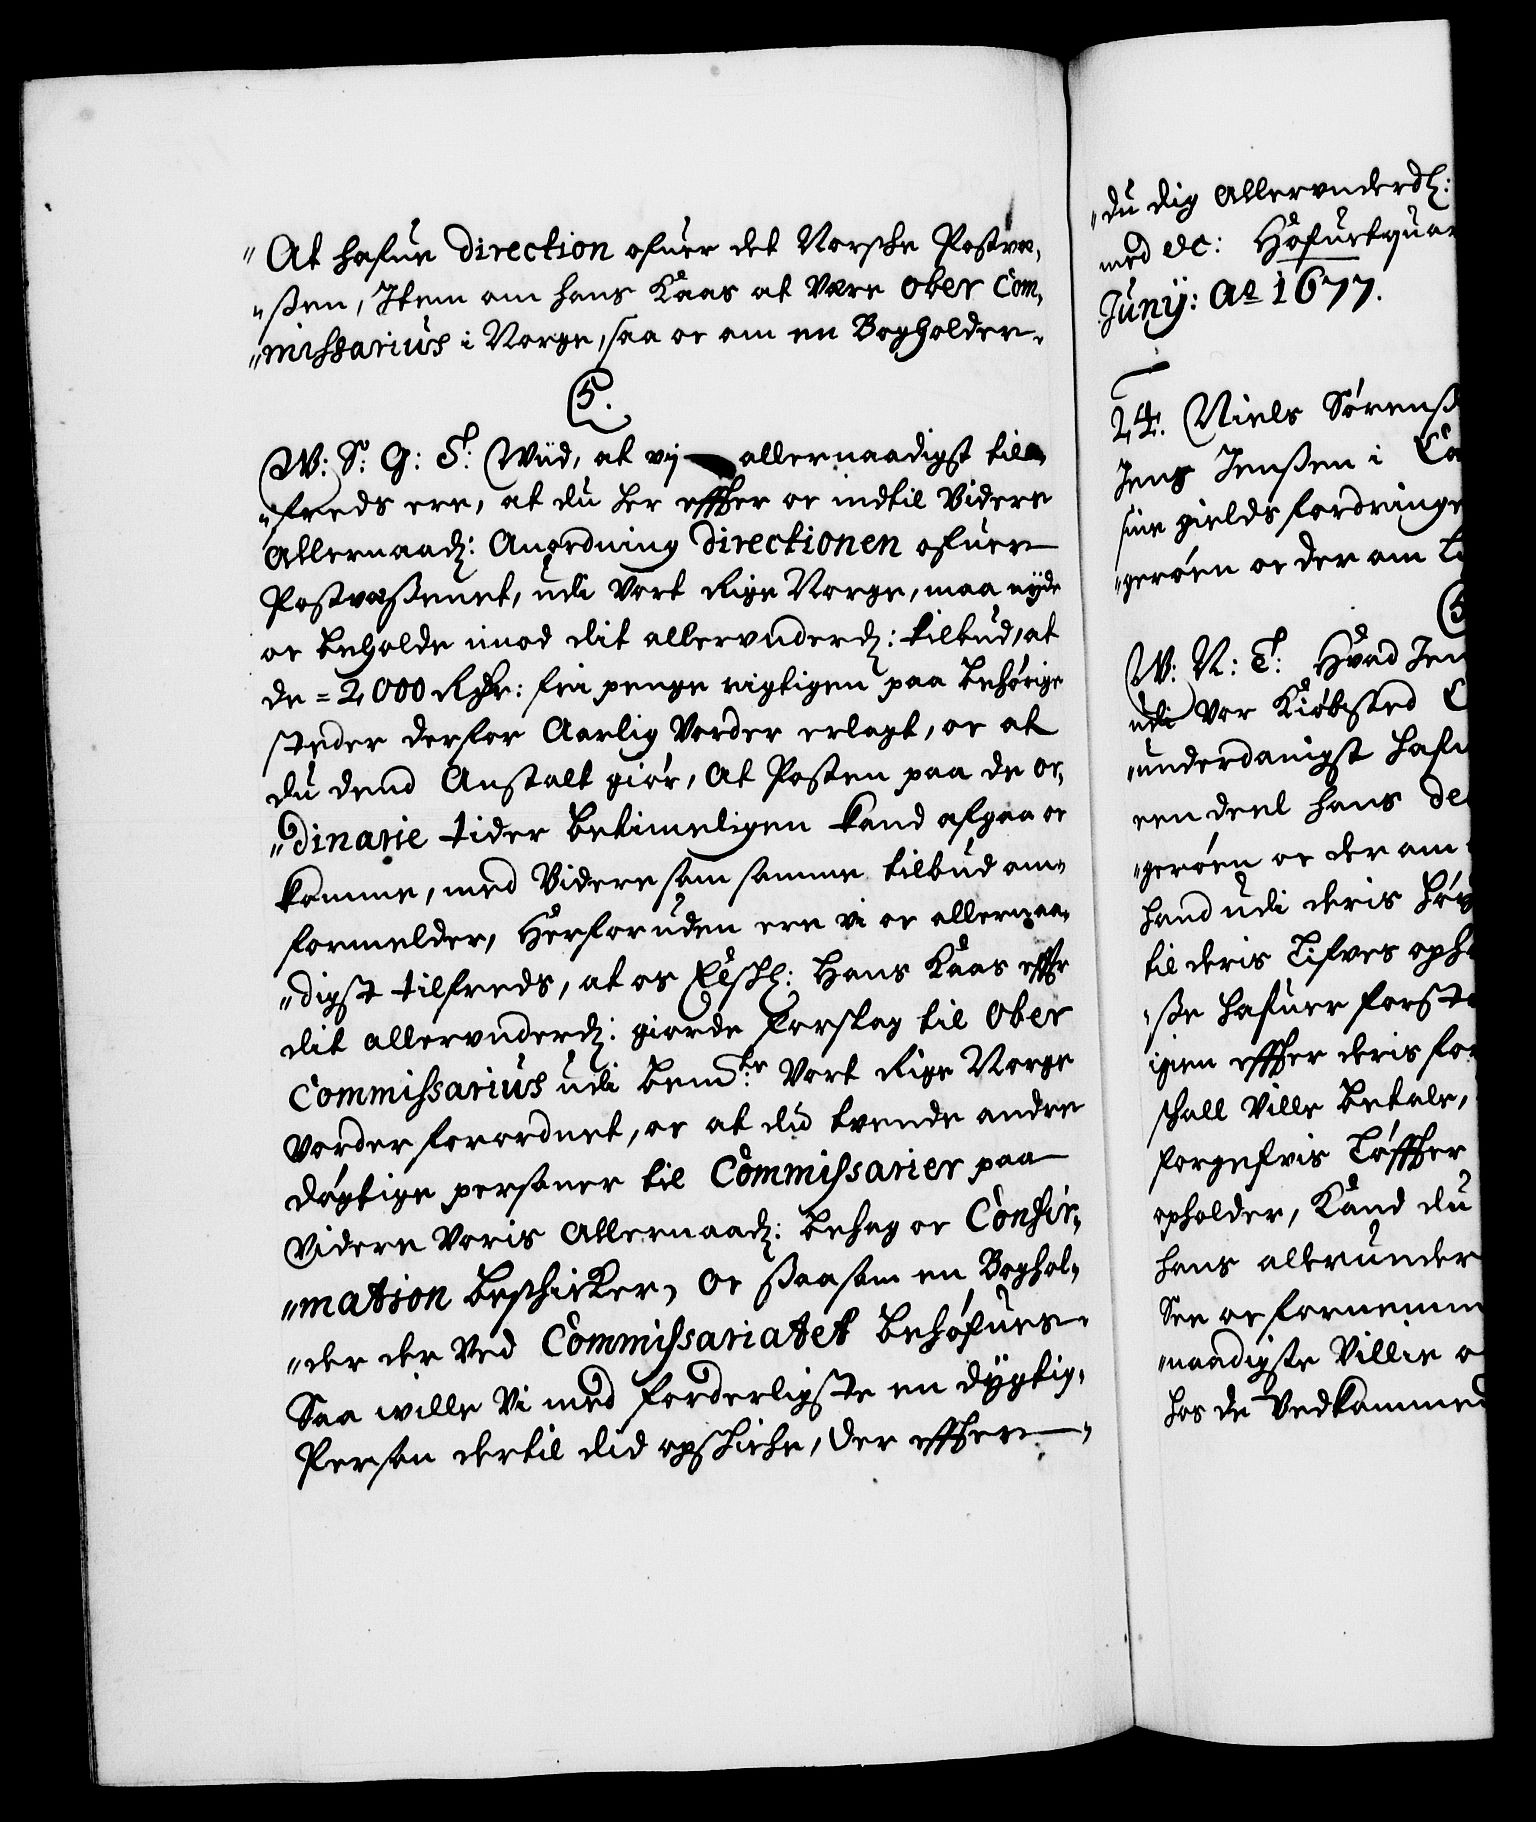 "At hafue Direction ofuer det Norsche Postvæ„
"ßen, Item om Hans Kaas at være Ober Com„
"missarius i Norge, saa oc om en Bogholder.
5.
W: S: G: T: Wiid, at vij allernaadigst til„
"freds ere, at du her effter oc indtil Videre
Allernaad: Anordning Directionen ofuer
Postvæßenet, udi Vort Rige Norge, maa nyde
oc beholde imod dit allerunderd: tilbud, at
de = 2000 Rdr: frie penge rigtigen paa behørige
steder derfor Aarlig Vorder erlagt, oc at
du dend Anstalt giør, At Posten paa de or„
"dinarie tider betimeligen kand afgaa oc
komme, med Videre som samme tilbud om„
formelder, Herforuden ere vi oc allernaa„
"digst tilfreds, at os Elschl: Hans Kaas effter
dit allerunderd: giorde forslag til Ober
Commissarius udi bemte: Vort Rige Norge
Vorder forordnet, oc at du tvende andre
døgtige personer til Commissarier paa
Videre Voris Allernaad: behag oc Confir„
"mation beschicker, Oc saasom en Boghol„
"der der Ved Commissariatet behøfues.
Saa wille Vi med forderligste en dygtig
Person dertil did opschiche, der effter„
"du dig Allerunderdl:
med etc: Hofuetquar
Junij: Ao 1677.
24. Niels Sørenß
Jens Jenßen i
sine gields fordringe
"gerøen oc der om
W: N: T: Hvad Jen
udi Vor Kiøbsted
"underdanigst hafu
een deel hans
"gerøen oc der om
hand udi deris
til deris Lifves oph
"ße hafuer forst
igien effter deris for
schall Ville betale,
forgefvis Løffter
opholder, Kand du
hans allerunder
See oc fornemm
"naadigste Villie
hos de Vedkommed